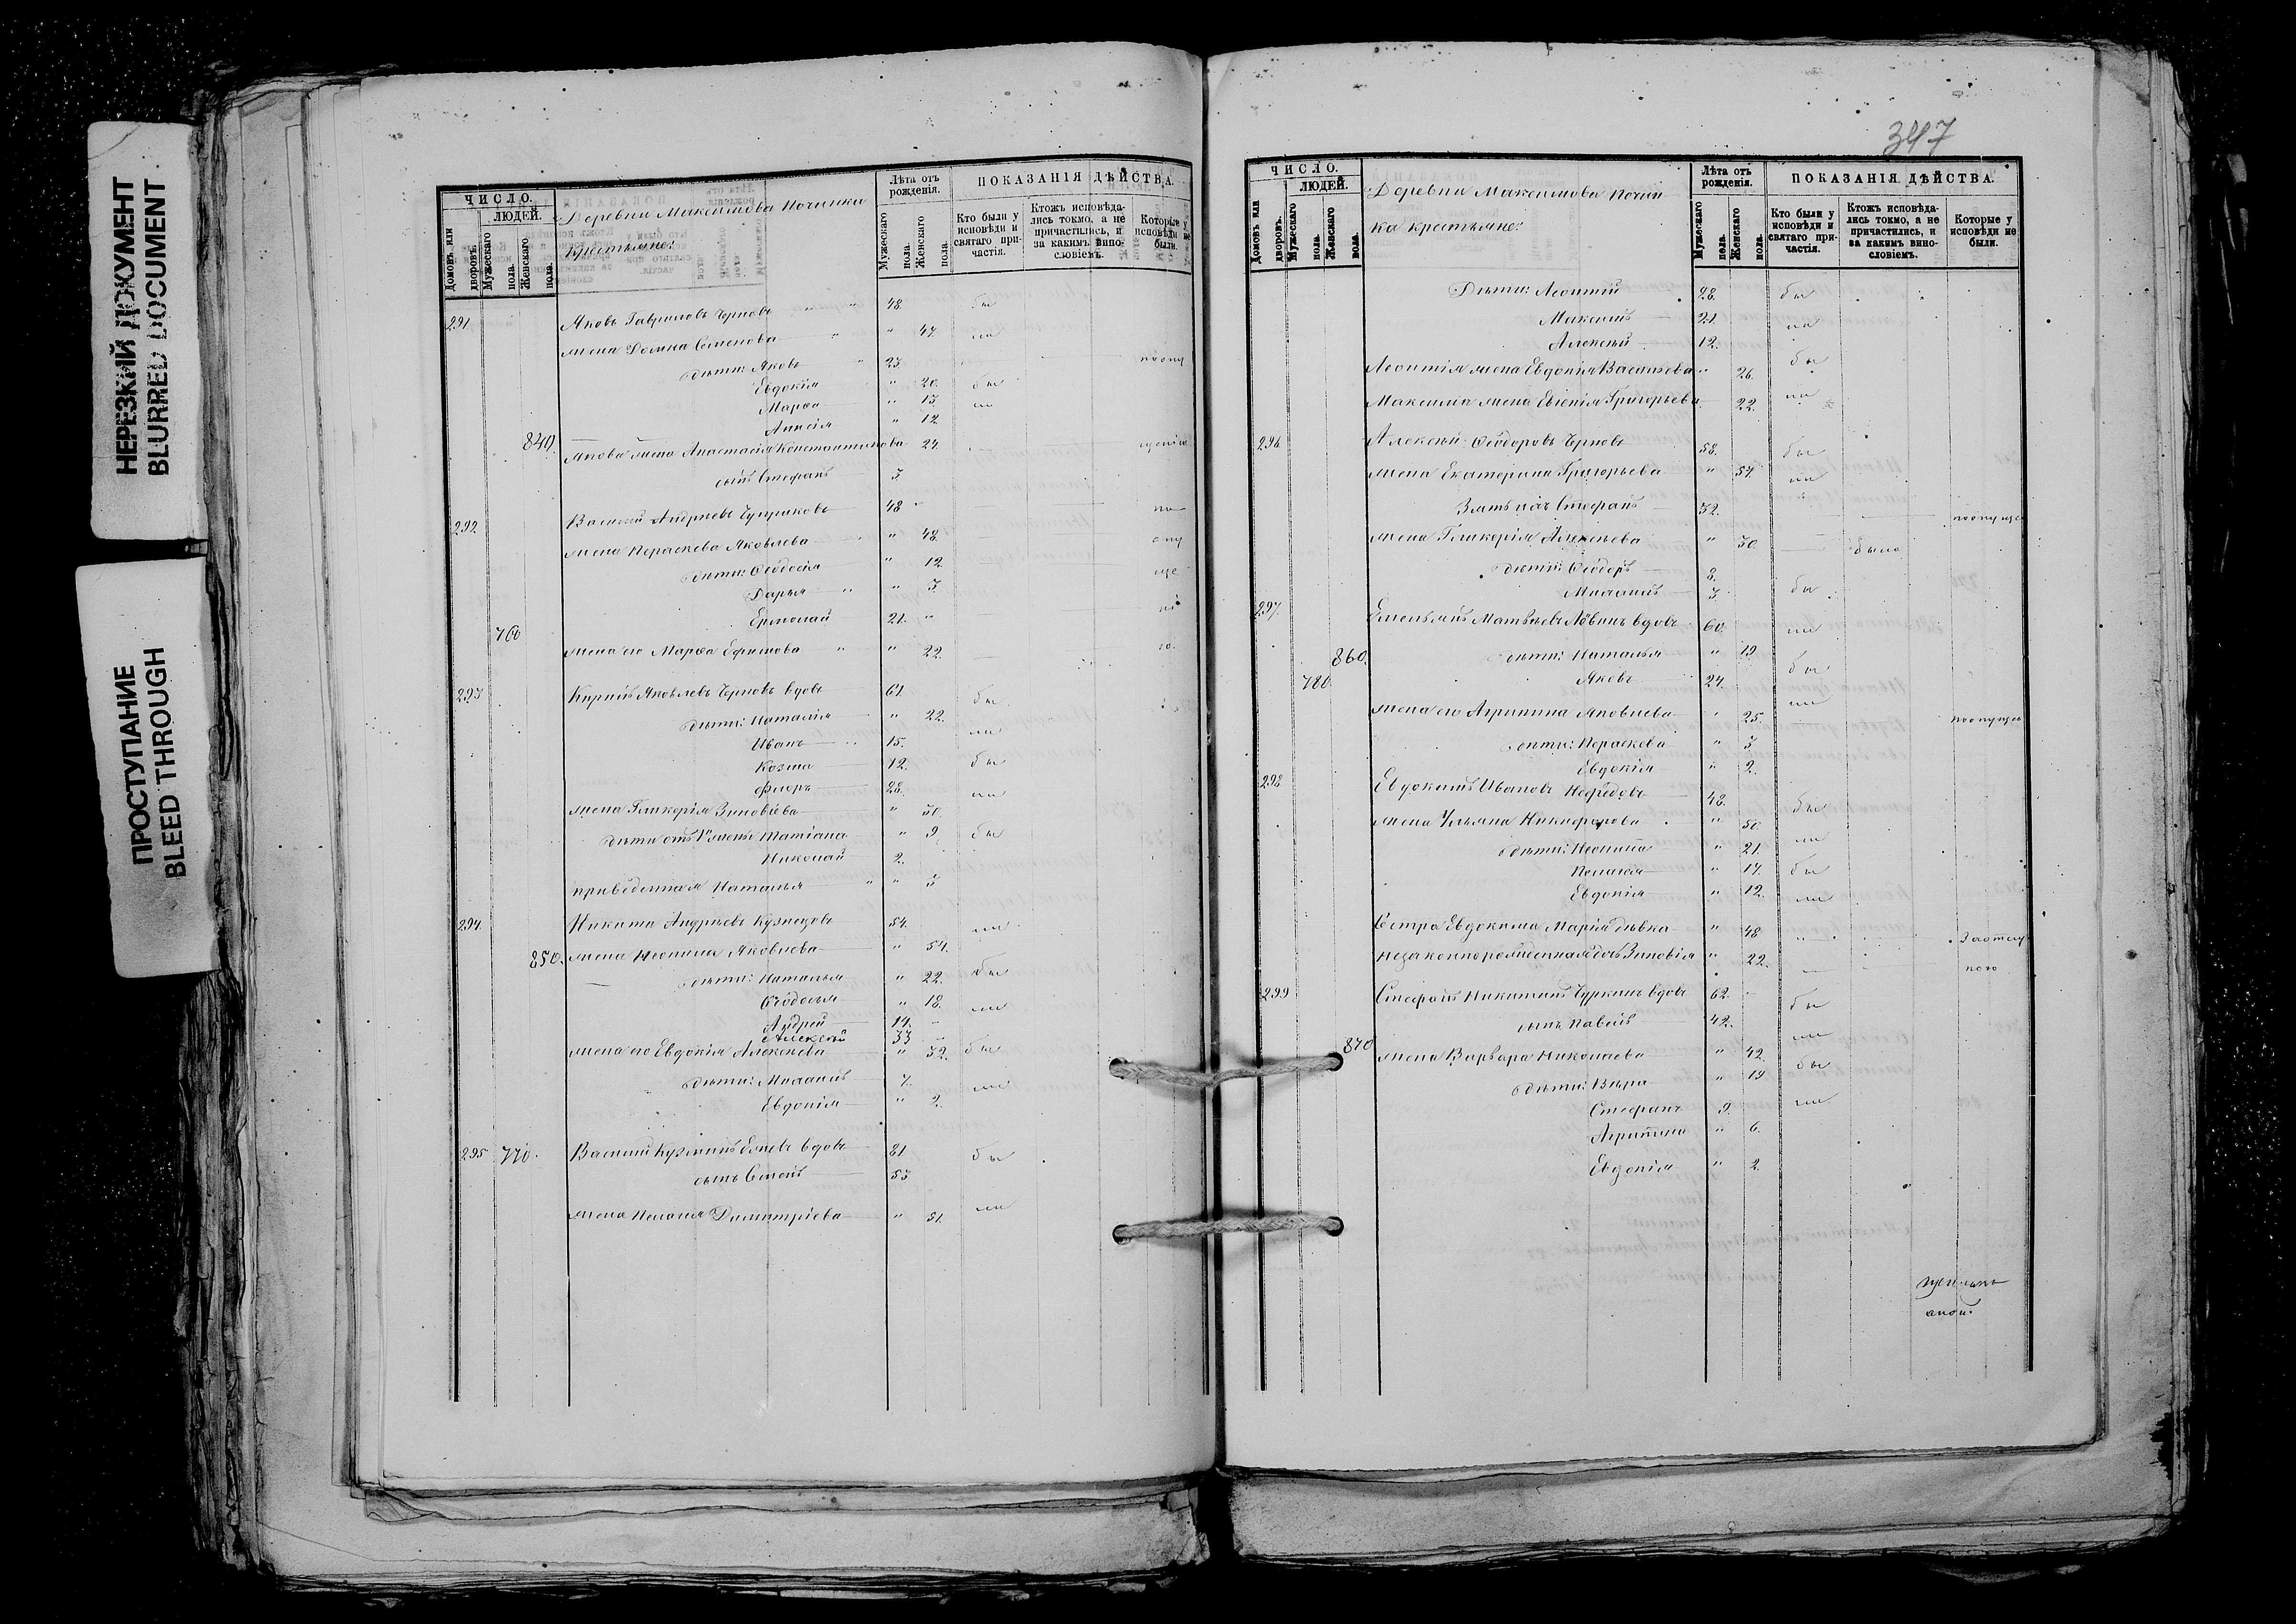 НЕРЕЗКИЙ ДОКУМЕНТ
BLURRED DOCUMENT
ПРОСТУПАНИЕ
BLEED THROUGH
ЧИСЛО.
ЛЮДЕЙ.
Домовъ или дворовъ.
Мужескаго пола.
Женскаго пола.
Деревни Максимова Починка
крестьяне:
Лѣта отъ рожденія.
Мужескаго пола.
Женскаго пола.
ПОКАЗАНІЯ ДѢЙСТВА.
Кто были у исповѣди и святаго при-частія.
Ктожъ исповѣда-лись токмо, а не причастились, и за какимъ вино-словіемъ.
Которые у исповѣди не были.
291 Яковъ Гавриловъ Черновъ 48. бы
жена Домна Семенова " 47. ли
дѣти: Яковъ 23. по опу
Евдокія " 20. бы
Марѳа " 15 ли
Анисія " 12
840. Якова жена Анастасія Константинова 24. щенію
сынъ Стефанъ 3
292 Василій Андреевъ 48 по
жена Параскева Яковлева " 48. опу
дѣти: Ѳеодосія " 12 ще
Дарья " 3 ні
Ермолай 21. "
760 жена его Марѳа Ефимова " 22. ю.
293 Кирилъ Яковлевъ Черновъ вдовъ 61 бы
дѣти: Наталія " 22. ли
Иванъ 15.
Козма 12. бы
Флоръ 28. ли
жена Гликерія Зиновіева " 30.
дѣти отъ 1й жены Татіана " 9 бы
Николай 2.
приведенная Наталья " 3
294 Никита Андреевъ Кузнецовъ 54. ли
850. жена Неонила Яковлева " 54.
дѣти: Наталья " 22. бы
Ѳеодосья " 18. ли
Андрей 14.
Алексѣй 33
жена его Евдокія Алексѣева " 32. бы
дѣти: Михаилъ 7. ли
Евдокія " 2.
295 770. Василій Кузминъ вдовъ 81 бы
сынъ Семенъ 53
жена Пелагія Димитріева " 51. ли
347
ЧИСЛО.
ЛЮДЕЙ.
Домовъ или дворовъ.
Мужескаго пола.
Женскаго пола.
Деревни Максимова Почин
ка крестьяне:
Лѣта отъ рожденія.
Мужескаго пола.
Женскаго пола.
ПОКАЗАНІЯ ДѢЙСТВА.
Кто были у исповѣди и святаго при-частія.
Ктожъ исповѣда-лись токмо, а не причастились, и за какимъ вино-словіемъ.
Которые у исповѣди не были.
Дѣти: Леонтій 28. бы
Максимъ 21. ли
Алексѣй 12.
Леонтія жена Евдокія Васильева " 26. бы
Максима жена Евгенія Григорьева 22. ли
296. Алексѣй Ѳеодоровъ Черновъ 58. бы
жена Екатерина Григорьева " 57. ли
Зять ихъ Стефанъ 32. по опуще
жена Гликерія Алексѣева " 30 была
дѣти: Ѳеодоръ 8.
Михаилъ 3. бы
297. Емельянъ Матвѣевъ вдовъ 60. ли
860. дѣти: Наталья " 19
780 Яковъ 24. бы
жена его Агрипина Яковлева " 25. ли по опуще
дѣти: Параскева " 3
Евдокія " 2.
298 Евдокимъ Ивановъ Нефёдовъ 48. бы
жена Ульяна Никифорова " 50. ли
дѣти: Неонила " 21.
Пелагія " 17. бы
Евдокія " 12. ли
Сестра Евдокима Марія дѣвка " 48 За отлуч
Незаконнорожденная дочь Зиновія " 22. кою
299 Стефанъ Никитинъ Чуркинъ вдовъ 62. бы
сынъ Павелъ 42. ли
870 жена Варвара Николаева " 42 бы
дѣти: Вѣра " 19
Стефанъ 9. ли
Агрипина " 6.
Евдокія " 2.